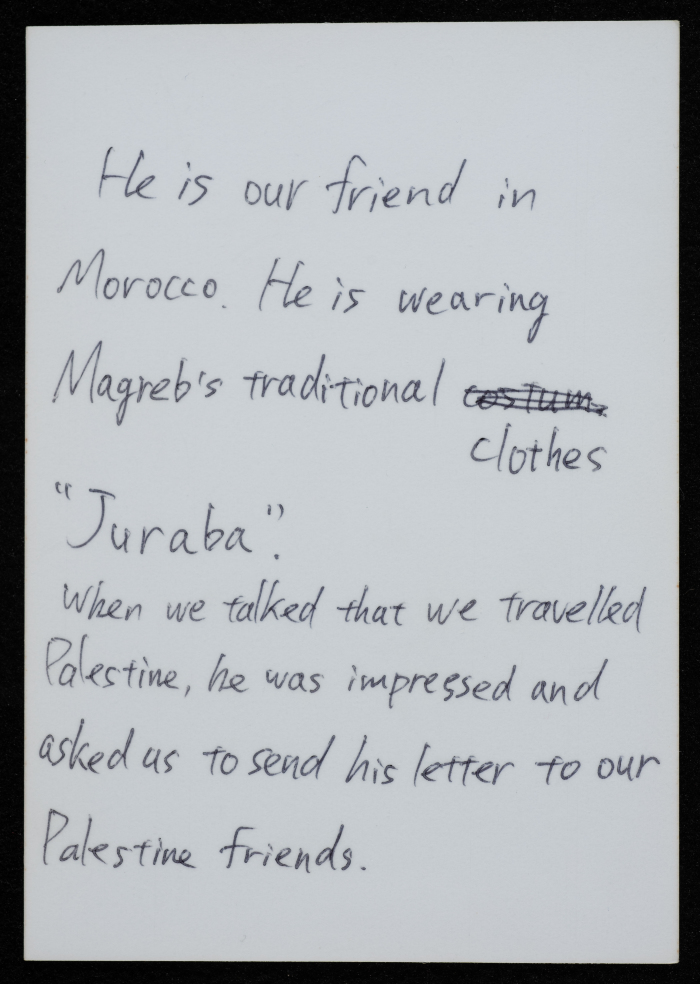 He is our friend in
Morocco. He is wearing
Magreb's traditional costum.
clothes
"Juraba".
When we talked that we travelled
Palestine, he was impressed and
asked us to send his letter to our
Palestine friends.